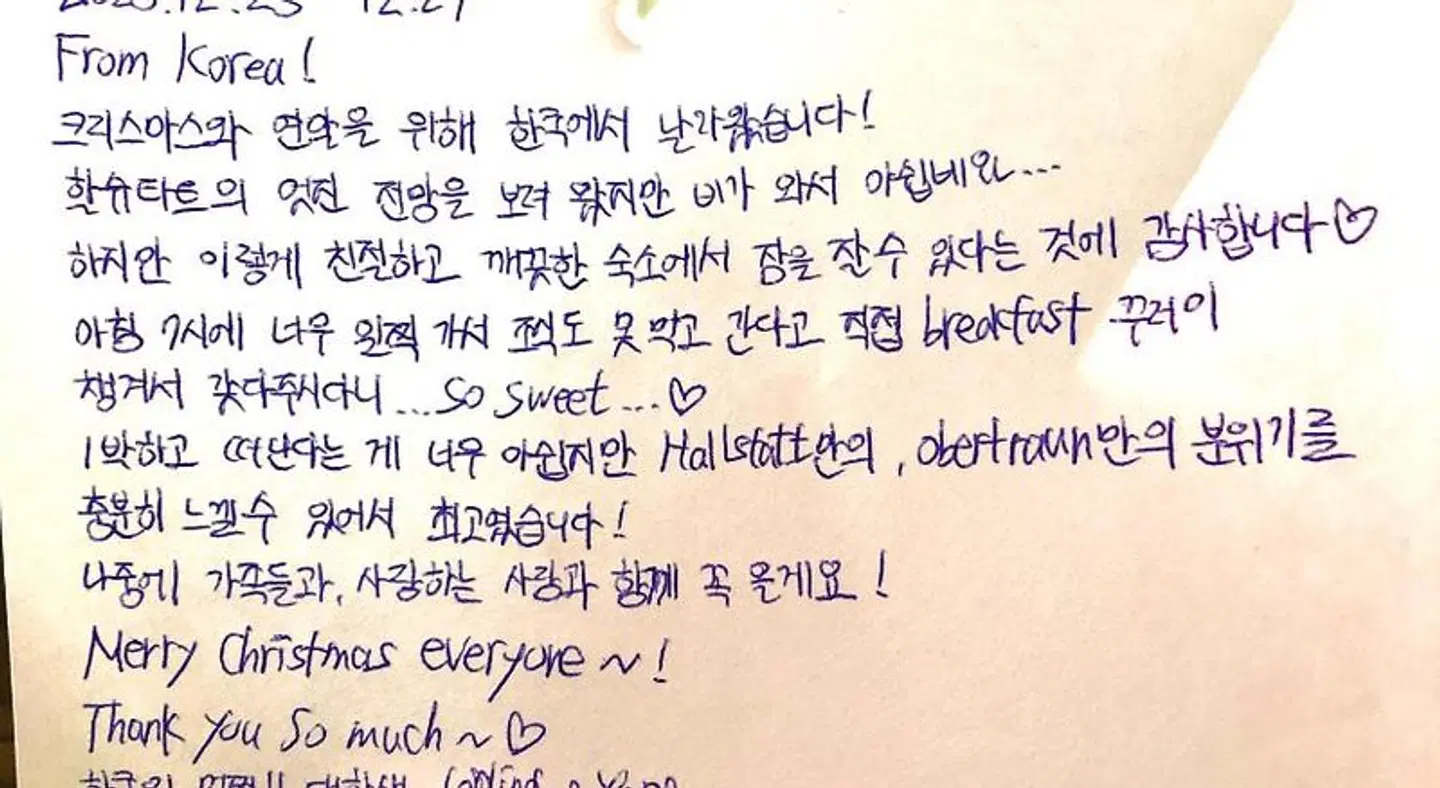 From Korea!
크리스마스와 연말을 위해 한국에서 날라왔습니다!
할슈타트의 멋진 전망을 보려 왔지만 비가 와서 아쉽네요....
하지만 이렇게 친절하고 깨끗한 숙소에서 잠을 잘 수 있다는 것에 감사합니다♡
아침 7시에 너무 일찍 가서 조식도 못 먹고 간다고 직접 breakfast 꾸러미
챙겨서 갖다주시다니...so sweet...♡
1박하고 떠난다는 게 너무 아쉽지만 Hallstatt만의, obertraun만의 분위기를
충분히 느낄 수 있어서 최고였습니다!
나중에 가족들과, 사랑하는 사람과 함께 꼭 올게요!
Merry Christmas everyone~!
Thank you so much~♡